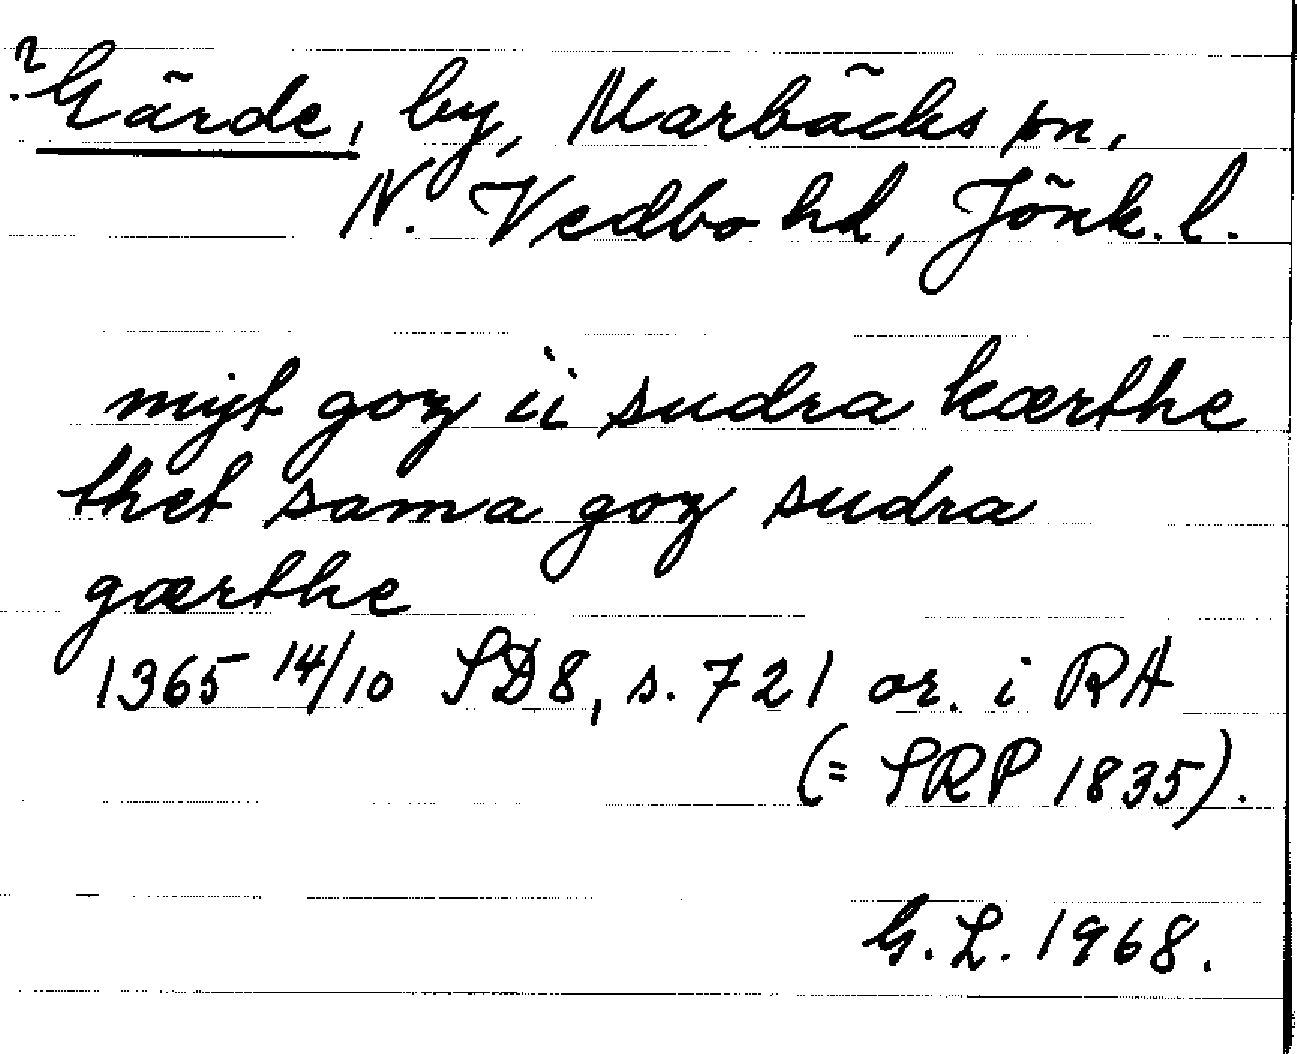 ? Gärde, by, Marbäcks sn,
N. Vedbo hd, Jönk. l.
mijt goz ii sudra kærthe
thet sama goz sudra
gærthe
1365 14/10 SD8, s. 721 or. i RA
(= SRP 1835).
G. L. 1968.